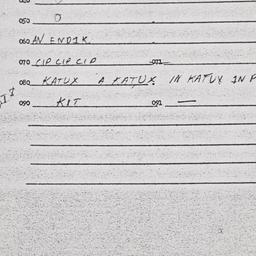 050 0
060 AV ENDIK
070 CIP CIP CIP 071
080 KATUX A KATUX IN KATUX IN
090 KIT 091 —